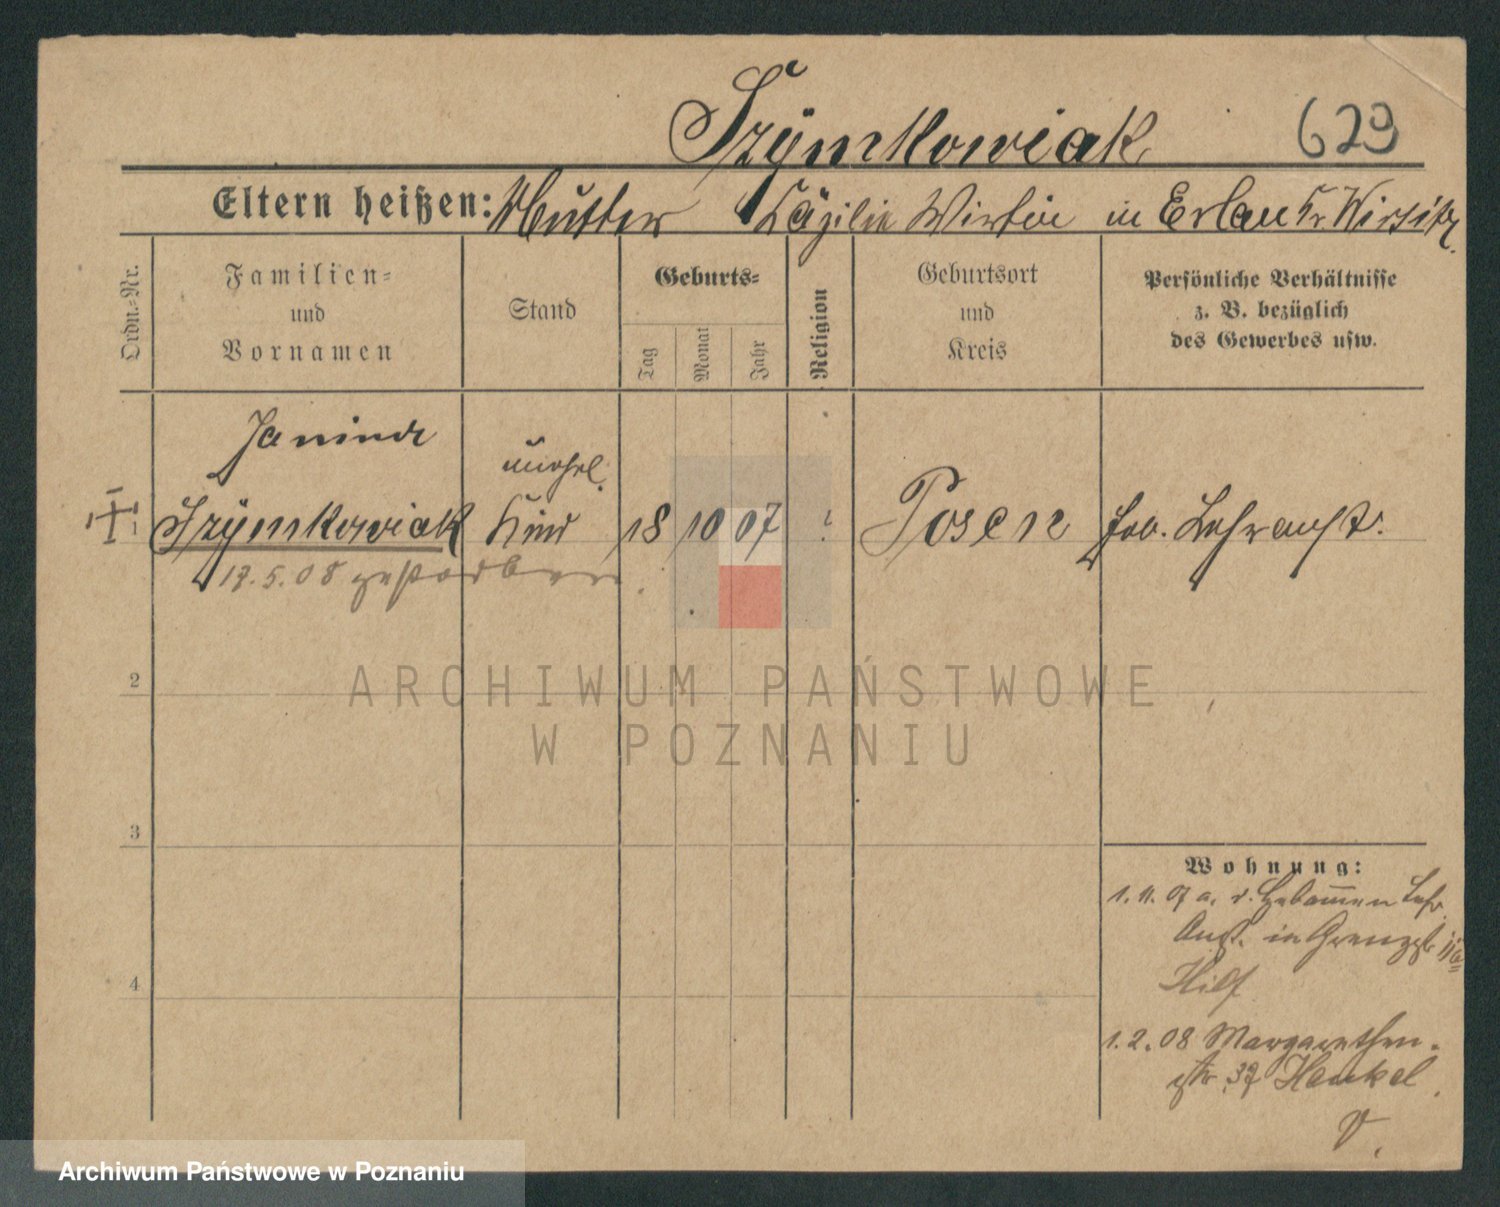 Szÿmkowiak 629
Eltern heißen: Mutter Cäzilie Wirtin in Erlau Kr. Wirsitz.
Ordn.-Nr.
Familien-
und
Vornamen
Stand
Geburts-
Tag
Monat
Jahr
Religion
Geburtsort
und
Kreis
Persönliche Verhältnisse
z. B. bezüglich
des Gewerbes usw.
Janina
unehel.
1 Szÿmkowiak Kind 18 10 07 ? Posen Lehranst.
17.5.08 gestorben
2
ARCHIWUM PAŃSTWOWE
W POZNANIU
3
Wohnung:
1. 11. 07 a. d. Hebammen Lehr
Anst. in Grenzstr
4
Hilf
1. 2. 08 Margarethen-
str 37 Henkel.
V.
Archiwum Państwowe w Poznaniu